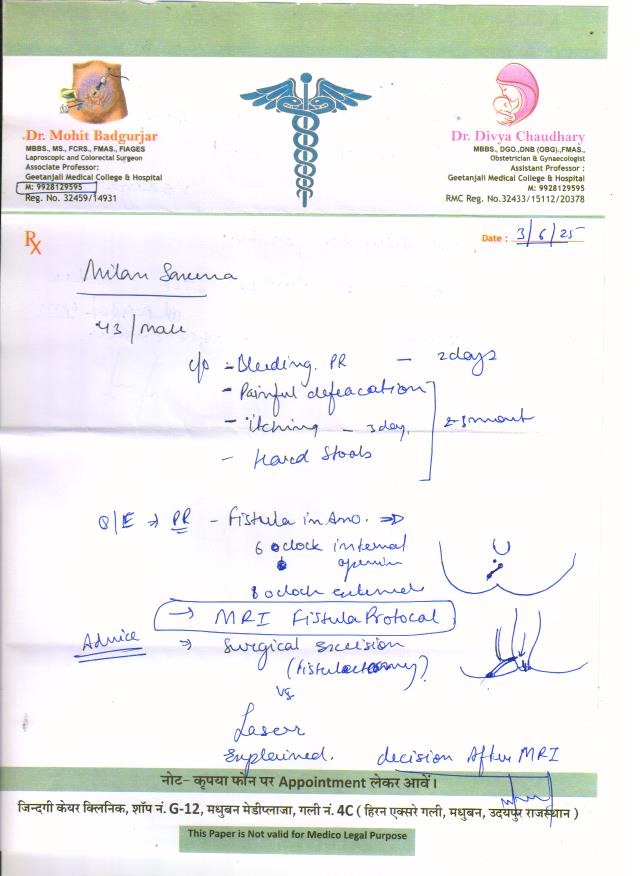 Dr. Mohit Badgurjar
MBBS., MS., FCRS., FMAS., FIAGES
Laproscopic and Colorectal Surgeon
Associate Professor:
Geetanjali Medical College & Hospital
M: 9928129595
Reg. No. 32459/14931
Dr. Divya Chaudhary
MBBS., DGO.,DNB (OBG).,FMAS.,
Obstetrician & Gynaecologist
Assistant Professor :
Geetanjali Medical College & Hospital
M: 9928129595
RMC Reg. No.32433/15112/20378
Rx
Date : 3/6/25
Milan
43/male
c/o - Bleeding PR - 2days
- Painful defeacation
- Itching - 3day.
- Hard Stools
O/E → PR - Fistula in Ano. ⇒
6 oclock internal
openin
8 oclock external
→ MRI Fistula Protocal
Advice ⇒ Surgical excision
(fistulectomy)
vs
Laser
Explained. decision After MRI
नोट- कृपया फोन पर Appointment लेकर आवें।
जिन्दगी केयर क्लिनिक, शॉप नं. G-12, मधुबन मेडीप्लाजा, गली नं. 4C ( हिरन एक्सरे गली, मधुबन, उदयपुर राजस्थान )
This Paper is Not valid for Medico Legal Purpose